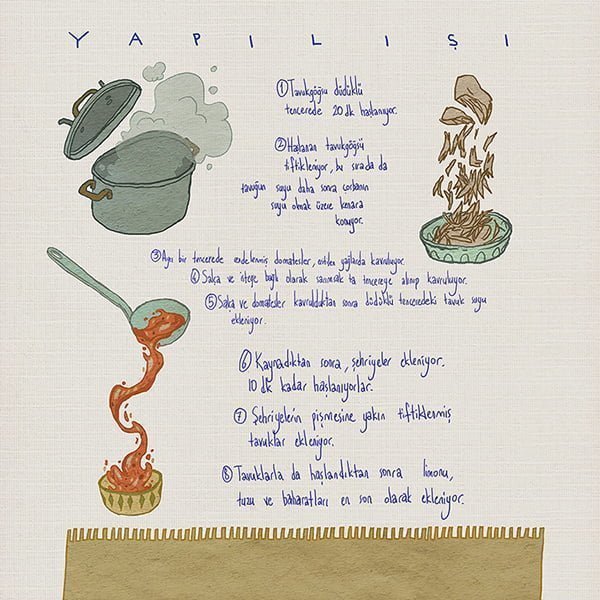 YAPILIŞI
① Tavukgöğsü düdüklü
tencerede 20 dk haşlanıyor.
② Haşlanan tavukgöğsü
tiftikleniyor, bu sırada da
tavuğun suyu daha sonra çorbanın
suyu olmak üzere kenara
konuyor.
③ Ayrı bir tencerede rendelenmiş domatesler, eritilen yağlarda kavruluyor.
④ Salça ve isteğe bağlı olarak sarımsak ta tencereye alınıp kavruluyor.
⑤ Salça ve domatesler kavrulduktan sonra düdüklü tenceredeki tavuk suyu
ekleniyor.
⑥ Kaynadıktan sonra, şehriyeler ekleniyor.
10 dk kadar haşlanıyorlar.
⑦ Şehriyelerin pişmesine yakın tiftiklenmiş
tavuklar ekleniyor.
⑧ Tavuklarla da haşlandıktan sonra limonu,
tuzu ve baharatları en son olarak ekleniyor.